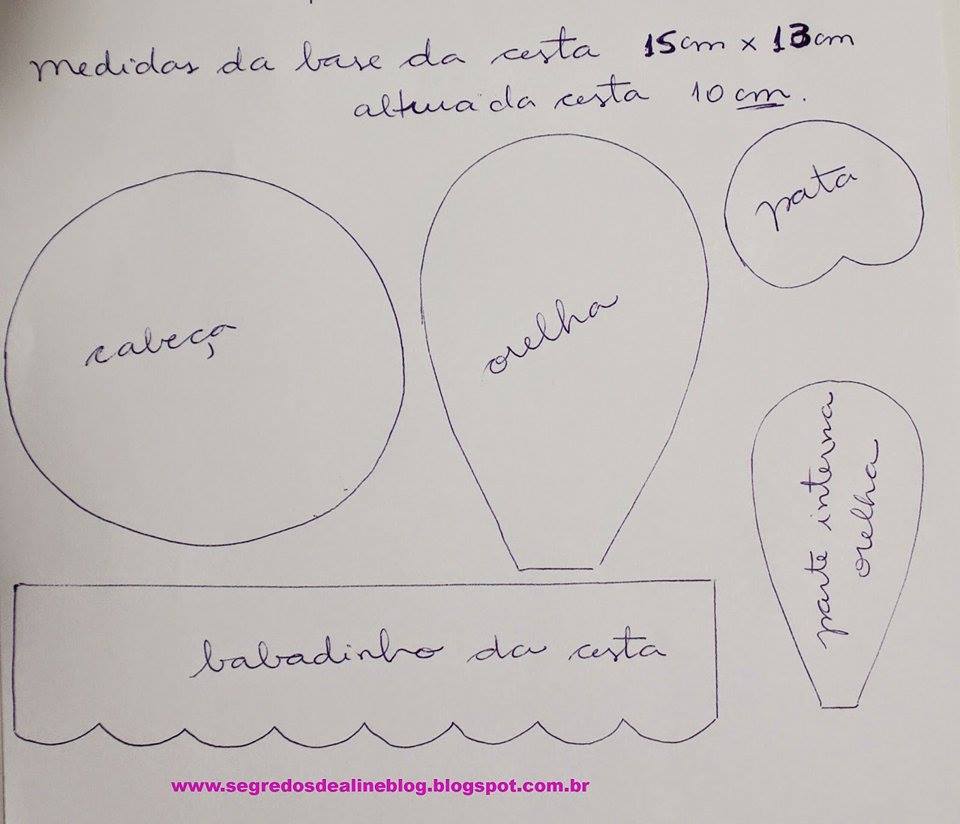 medidas da base da cesta 15cm x 13cm
altura da cesta 10 cm.
pata
cabeça
orelha
parte interna
orelha
babadinho da cesta
www.segredosdealineblog.blogspot.com.br